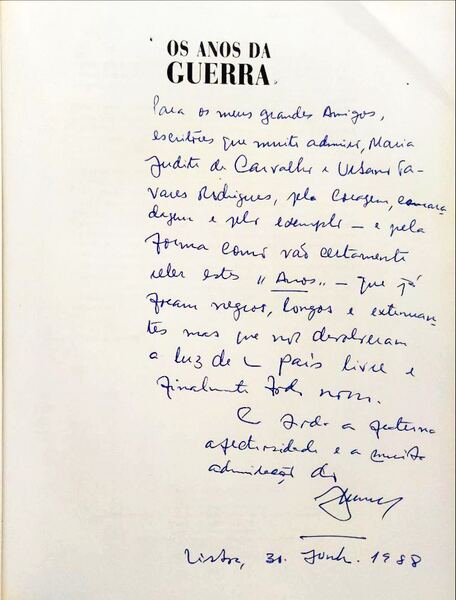 OS ANOS DA
GUERRA
Para os meus grandes Amigos,
escritores que muito admiro, Maria
Judite de Carvalho e Urbano Ta-
vares Rodrigues, pela coragem, camara-
dagem e pelo exemplo — e pela
forma como vão certamente
reler estes "Anos" — que já
foram negros, longos e extenuan-
tes mas que nos devolveram
a luz de um país livre e
finalmente todo nosso.
C/ toda a fraterna
afectuosidade e a muita
admiração do
Lisboa, 30. Junh. 1988